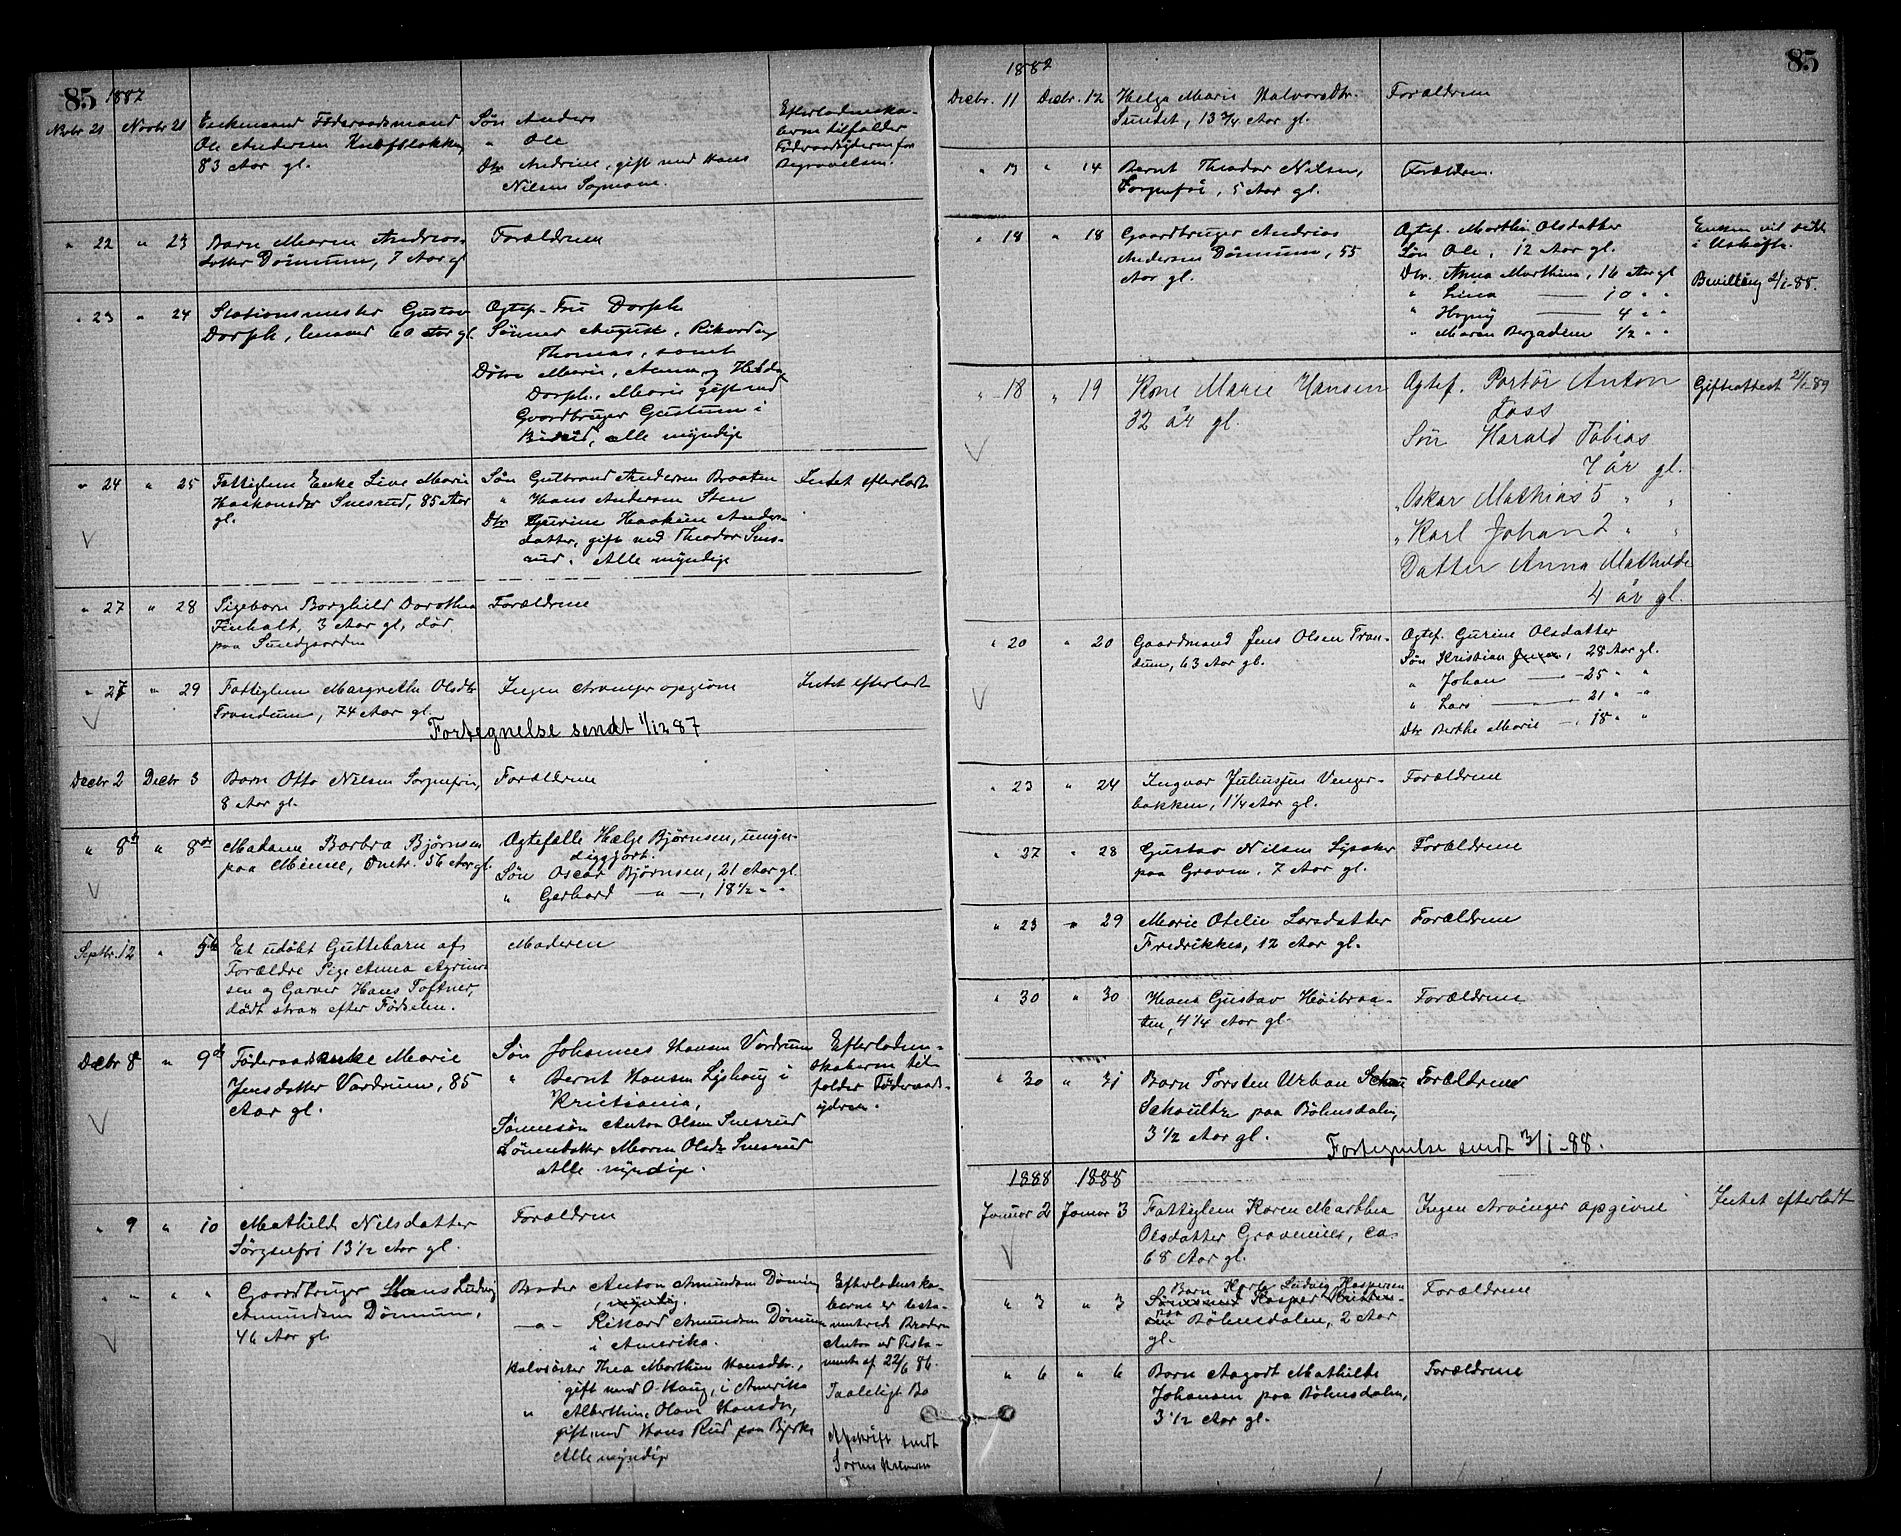 85 1887
Novbr 21 Novbr 21 Enkemand Föderaadsmand
Ole Andersen
83 Aar gl.
Søn Anders
" Ole
Dtr Andrine, gift med Hans
Nilsen
Efterladenska-
berne tilfalder
Föderaadyderen for
Begravelsen.
" 22 " 23 Barn Maren Andreas-
datter Dömum, 7 Aar gl
Forældrene
" 23 " 24 Stationsmester Gustav
Dorph, 60 Aar gl.
Ægtef. Fru Dorph
Sönner August, Rikard og
Thomas, samt
Dötre Marie, Anna og Hilda
Dorph, Marie gift med
Gaardbruger Gustum i
alle myndige
" 24 " 25 Fattiglem Enke Live Marie
Haakonsdtr Snesrud, 85 Aar
gl.
Søn Gulbrand Andersen Braaten
" Hans Andersen Sten
Dtr Gurine Haakine Anders-
datter, gift med Theodor Snes-
rud. Alle myndige
Intet efterladt
" 27 " 28 Pigebarn Borghild Dorothea
Finholt, 3 Aar gl, död
paa Sundgaarden
Forældrene
" 27 " 29 Fattiglem Margrethe Olsdtr
Trandum, 74 Aar gl.
Ingen Arvinger opgivne
Intet efterladt
Fortegnelse sendt 1/12 87
Decbr 2 Decbr 3 Barn Otto Nilsen Sorgenfri,
8 Aar gl.
Forældrene
" 8de " 8de Madame Barbra Björnsen
paa Minne, Omtr. 56 Aar gl
Ægtefælle Helge Bjørnsen, umyn-
diggjort.
Søn Oscar Bjørnsen, 21 Aar gl.
" Gerhard — " —, 18 1/2 " "
Septbr. 12 " 5te Et udöbt Guttebarn af
Forældre Pige Anna
sen og Garver Hans Toftner,
dödt strax efter Födselen.
Moderen
Decbr 8 " 9de Föderaadsenke Marie
Jensdatter Vardrum, 85
Aar gl.
Søn Johannes Hansen Vardrum
" Bernt Hansen Lyshaug i
Kristiania,
Sönnesön Anton Olsen Snesrud
Sönnedatter Maren Olsdtr Snesrud
Alle myndige.
Efterladen-
skaberne til-
falder Föderaad-
yderen.
" 9 " 10 Mathilde Nilsdatter
Sörgenfri 13 1/2 Aar gl.
Forældrene
" " " " Gaardbruger Hans Ludvig
Amundsen Dömum,
46 Aar gl.
Broder Anton Amundsen Döm
, myndig.
— " — Rikard Amundsen Dömum
i Amerika.
Halvsöster Thea Marthine Hansdtr.,
gift med O. Haug, i Amerika
" Alberthine Olava Hansdtr,
gift med Hans Rud paa Bjerke
Alle myndige
Efterladenska-
berne er testa-
menterede Broderen
Anton ved Testa-
ment af 22/6 86
Taaleligt Bo
Afskrift sendt
85
1887
Decbr. 11 Decbr. 12 Helga Marie Halvorsdtr.
Sundet, 13 3/4 Aar gl.
Forældrene
" 13 " 14 Bernt Theodor Nilsen,
Sorgenfri, 5 Aar gl.
Forældrene.
" 18 " 18 Gaardbruger Andreas
Andersen Dömum, 55
Aar gl.
Ægtef. Marthe Olsdatter
Søn Ole, 12 Aar gl.
Dtr. Anna Marthine, 16 Aar gl
" Lina — 10 " "
" Hagny — 4 " "
" Maren Bergadine 1/2 " "
Enken vil sidde
i Uskiftet.
Bevilling 2/1-88.
" 18 " 19 Kone Marie Hansen
32 år gl.
Ægtef. Portör Anton
Foss
Søn Harald Tobias
7 år gl.
" Oskar Mathias 5 " "
" Karl Johan 2 " "
Datter Anna Mathilde
4 år gl.
Gifteattest 2/1 89
" 20 " 20 Gaardmand Jens Olsen Tran-
dum, 63 Aar gl.
Ægtef. Gurine Olsdatter
Søn Kristian Jensen, 28 Aar gl.
" Johan — 25 " "
" Lars — 21 " "
Dtr Berthe Marie —, 18 " "
" 23 " 24 Ingvar Juliussen Venger-
bakken, 1 1/4 Aar gl.
Forældrene
" 27 " 28 Gustav Nilsen Lysaker
paa Graven, 7 Aar gl.
Forældrene
" 23 " 29 Marie Otelie Larsdatter
Fredrikkes, 12 Aar gl.
Forældrene
" 30 " 30 Hans Gustav Höibraa-
ten, 4 1/4 Aar gl.
Forældrene
" 30 " 31 Barn Torsten Urban
Schoultz paa Böhnsdalen,
3 1/2 Aar gl.
Forældrene
Fortegnelse sendt 3/1-88.
1888 1888
Januar 2 Januar 3 Fattiglem Karen Marthea
Olsdatter, ca
68 Aar gl.
Ingen Arvinger opgivne
Intet efterladt
" 3 " 3 Barn Karl Ludvig Kaspersen
paa
Böhnsdalen, 2 Aar
gl.
Forældrene
" 6 " 6 Barn Aagodt Mathilde
Johansen paa Böhnsdalen,
3 1/2 Aar gl.
Forældrene